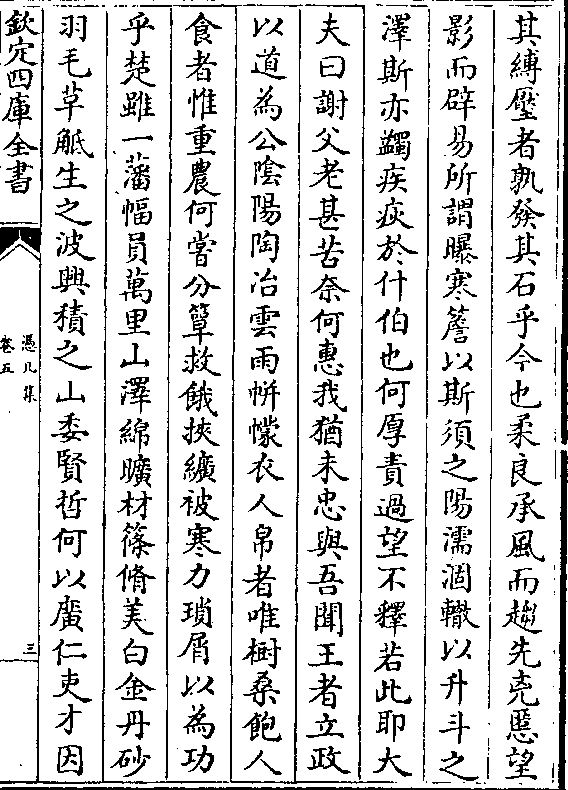 其縛壓者孰發其石乎今也柔良承風而趨先兇慝望
影而辟易所謂曝寒簷以斯須之陽濡涸轍以升斗之
澤斯亦蠲疾疢於什伯也何厚責過望不釋若此耶大
夫曰謝父老甚苦奈何惠我猶未忠與吾聞王者立政
以道為公陰陽陶冶雲雨帡幪衣人帛者唯樹桑飽人
食者惟重農何嘗分簞救餓挾纊被寒力瑣屑以為功
乎楚雖一藩幅員萬里山澤綿曠材篠脩美白金丹砂
羽毛草觝生之波興積之山委賢哲何以廣仁吏才因
欽定四庫全書
憑几集
卷五
三